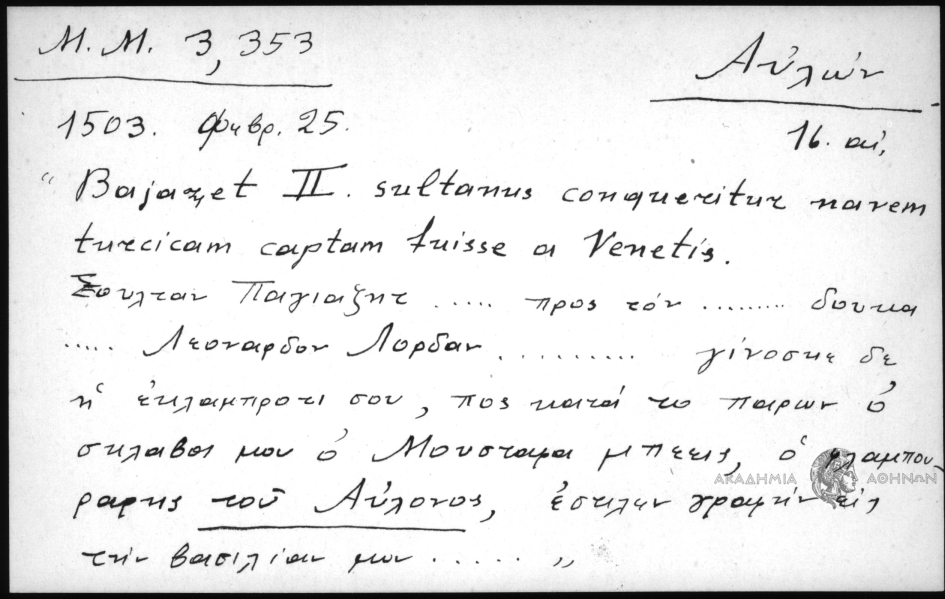 Μ.Μ. 3, 353
Αὐλών
1503. Φεβρ. 25.
16. αἰ.
"Bajazet II. sultanus conqueritur navem
turcicam captam fuisse a Venetis.
Σουλταν Παγιαζητ ..... προς τόν ........ δουκα
..... Λεοναρδον Λορδαν .......... γίνοσκε δε
ἡ ἐκλαμπροτι σου, πος κατά το παρων ὁ
σκλαβος μου ὁ Μουσταφα μπεεις, ὁ φλαμπου
ραρης τοῦ Αὐλονος, ἐστιλεν γραφήν εἰς
τήν βασιλίαν μου ..... "
ΑΚΑΔΗΜΙΑ ΑΘΗΝΩΝ